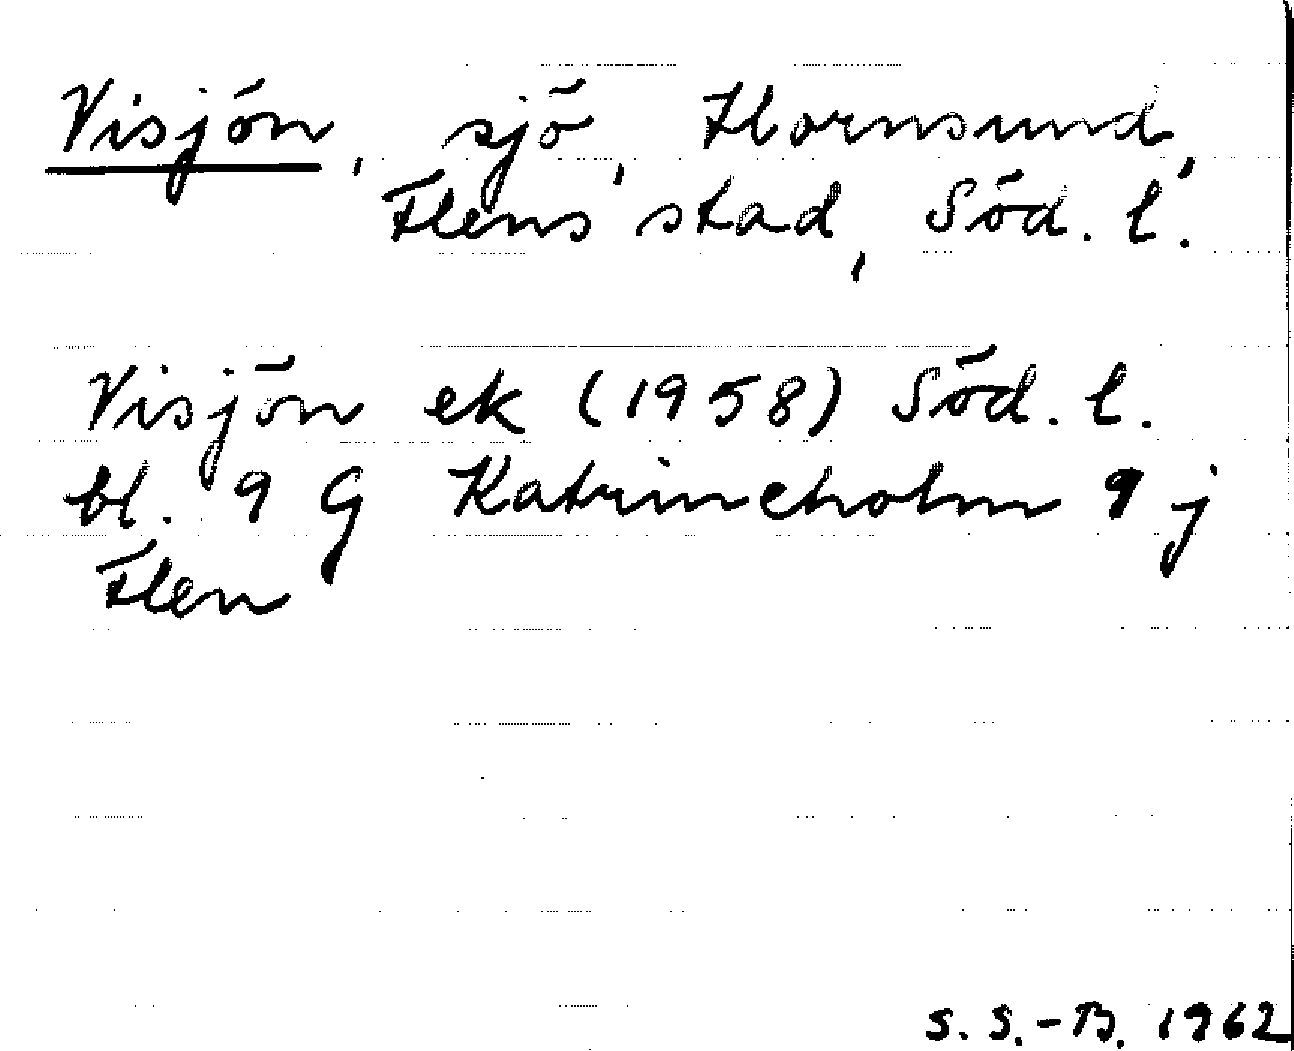 Visjön, sjö, Hornsund,
Flens stad, Söd. l.
Visjön ek (1958) Söd. l.
bl. 9 G Katrineholm 9 j
Flen
S. S.-B. 1962